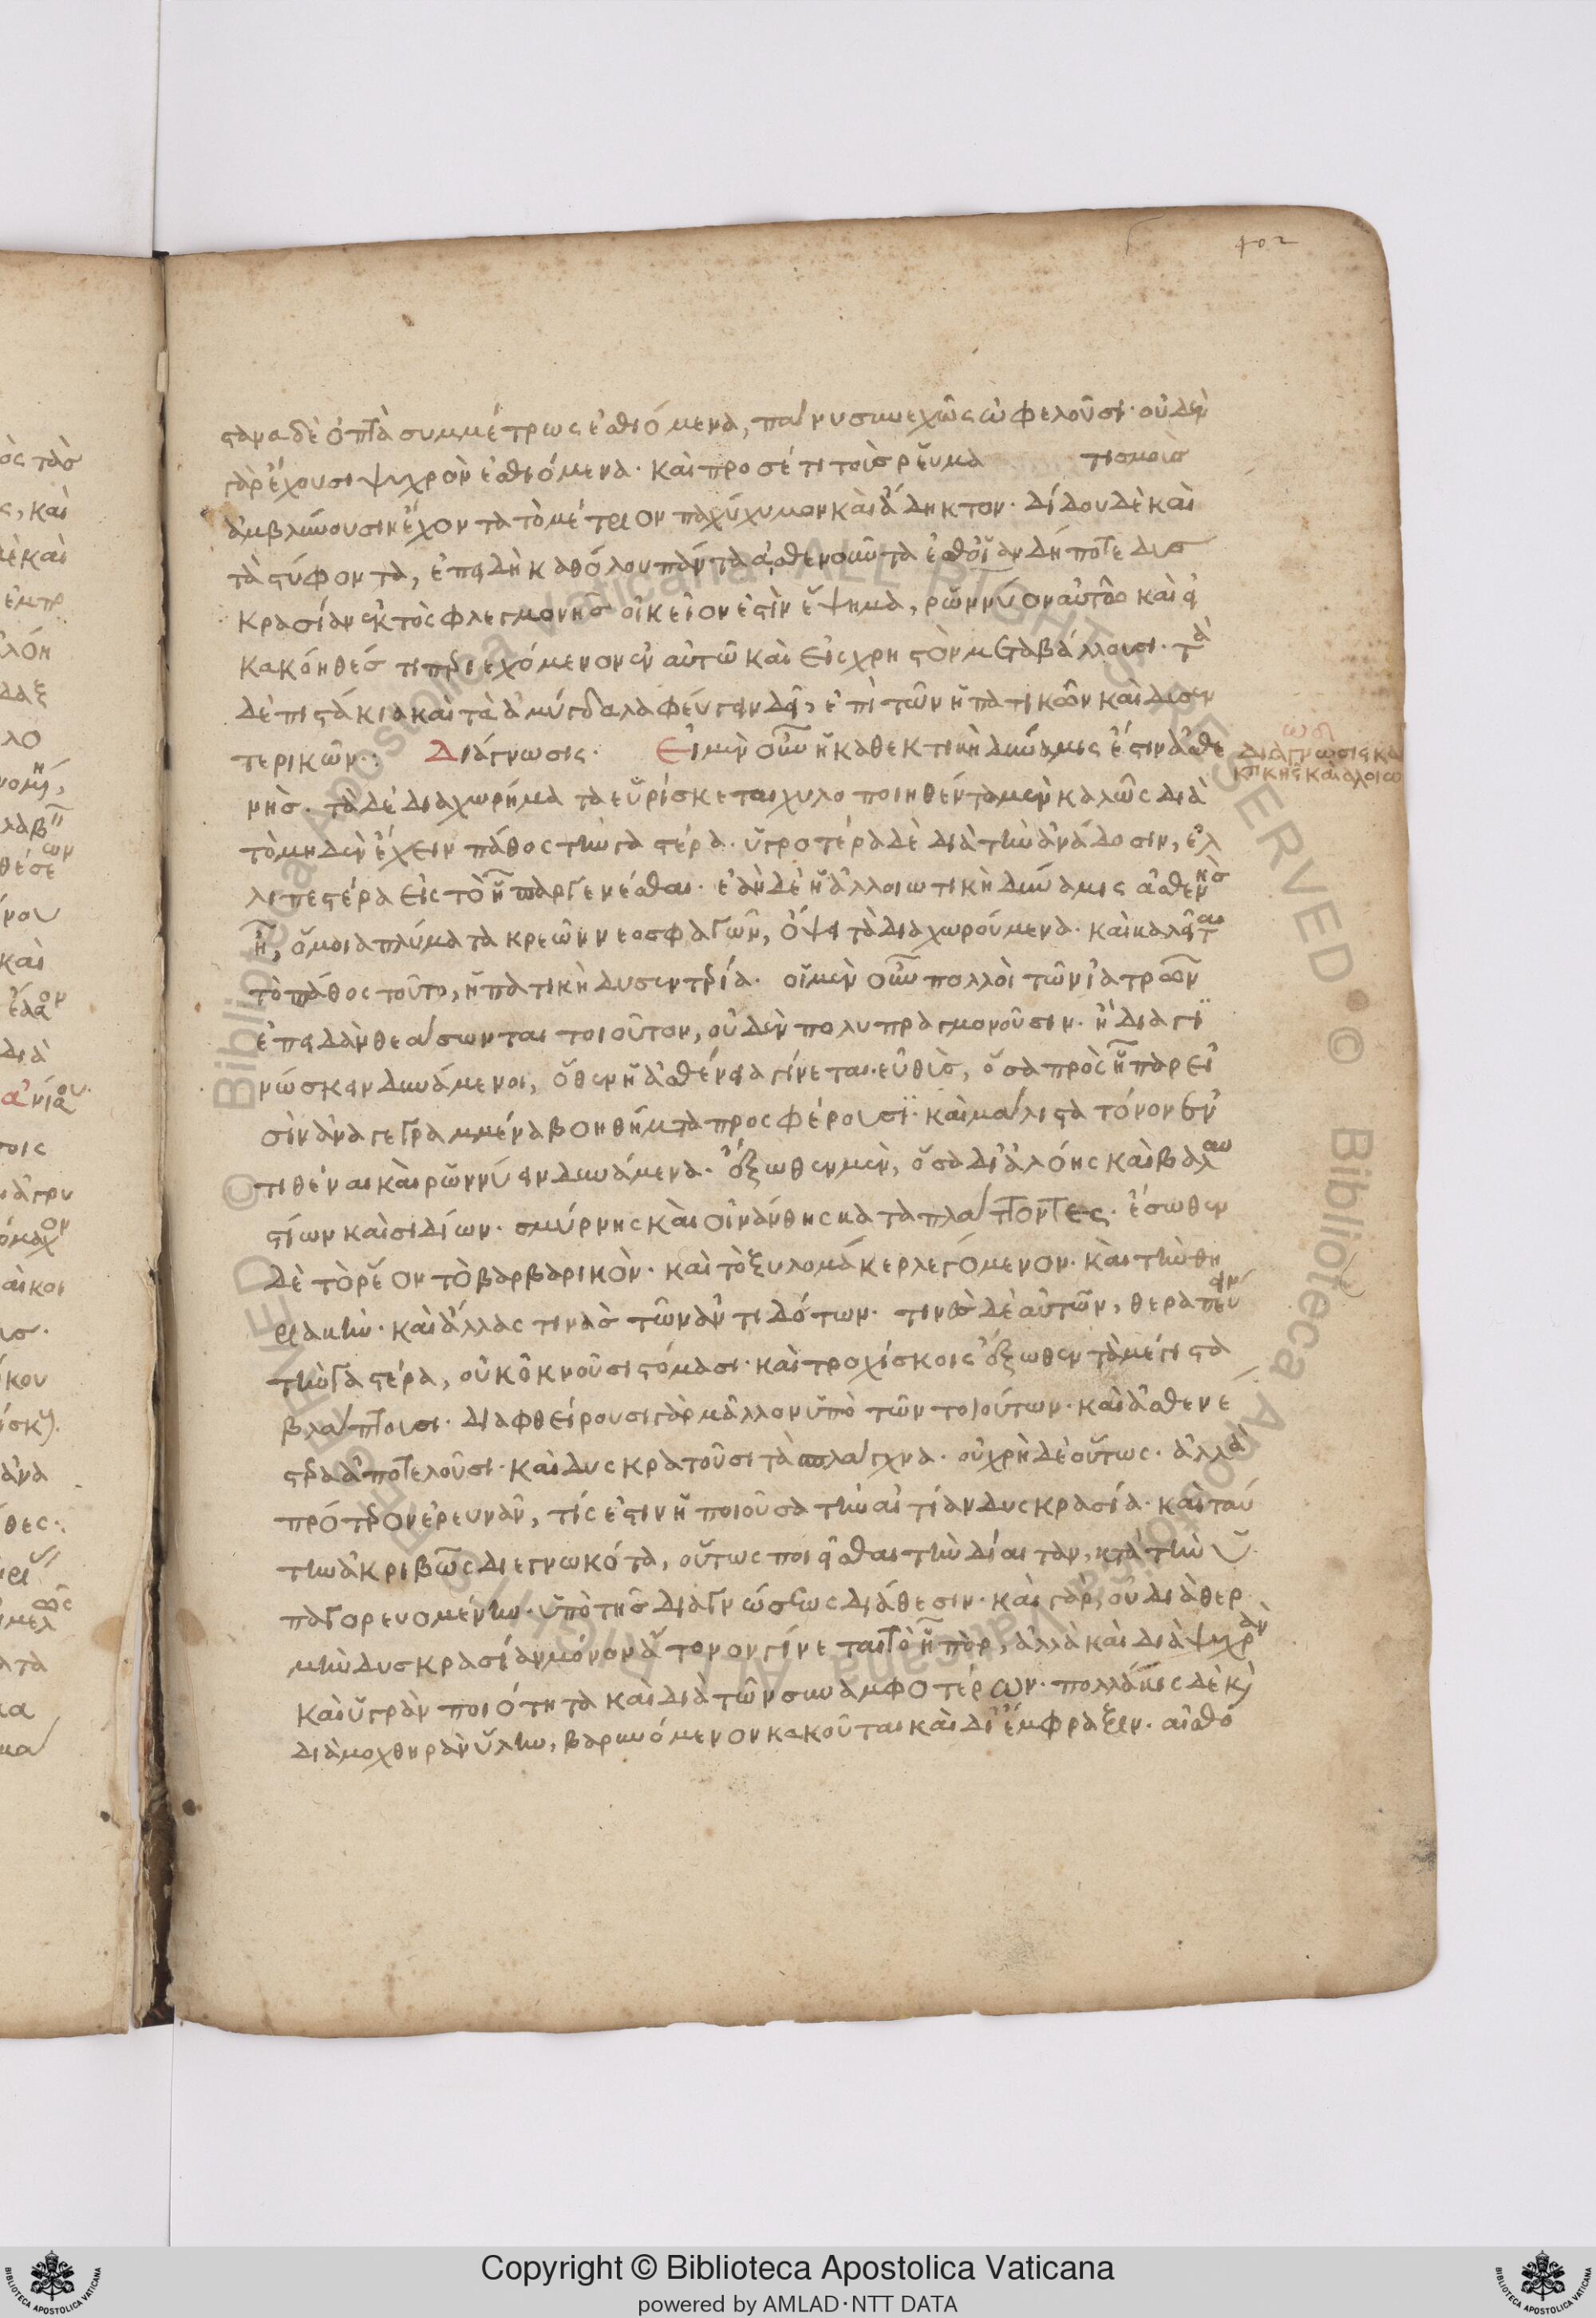 402
στανα δὲ ὀπτὰ συμμέτρως ἐσθιόμενα, πάνυ συνεχῶς ὠφελοῦσι· οὐδὲν
γὰρ ἔχουσι ψυχρὸν ἐσθιόμενα· καὶ προσέτι τοῖς ῥευμα τισμοῖς
ἀμβλύνουσιν ἔχοντα τὸ μέτριον παχύχυμον καὶ ἄδηκτον· δίδου δὲ καὶ
τὰ στύφοντα, ἐπειδὴ καθόλου πάντα ἀσθενοῦντα δήποτε δυσ
κρασίαν ἐκτὸς φλεγμονῆς οἰκεῖον ἐστὶν ἕψημα, ῥωννύον αὐτὸ καὶ εἰ
κακόηθές τι περιεχόμενον ἐν αὐτῷ καὶ εἰς χρηστὸν μεταβάλλουσι· τὰ
δὲ πιστάκια καὶ τὰ ἀμύγδαλα φεύγειν δεῖ, ἐπὶ τῶν ἡπατικῶν καὶ δυσεν
τερικῶν·: Διάγνωσις· Εἰ μὲν οὖν ἡ καθεκτικὴ δύναμις ἐστιν ἀσθε
νὴς· τὰ δὲ διαχωρήματα εὑρίσκεται χυλοποιηθέντα μὲν καλῶς διὰ
τὸ μηδὲν ἔχειν πάθος τὴν γαστέρα· ὑγροτέρα δὲ διὰ τὴν ἀνάδοσιν, ἐλ
λιπεστέρα εἰς τὸ ἧπαρ γενέσθαι· ἐὰν δὲ ἡ ἀλλοιωτικὴ δύναμις ἀσθενὴς
ᾖ, ὅμοια πλύματα κρεῶν νεοσφαγῶν, ὄψει τὰ διαχωρούμενα· καὶ καλεῖται
τὸ πάθος τοῦτο, ἡπατικὴ δυσεντερία· οἱ μὲν οὖν πολλοὶ τῶν ἰατρῶν
ἐπειδὰν θεάσωνται τοιοῦτον, οὐδὲν πολυπραγμονοῦσιν· ἢ διαγι
νώσκειν δυνάμενοι, ὅθεν ἡ ἀσθένεια γίνεται· εὐθὺς, ὅσα πρὸς ἧπαρ εἰ
σὶν ἀναγεγραμμένα βοηθήματα προσφέρουσι· καὶ μάλιστα τόνον ἐν
τιθέναι καὶ ῥωννύειν δυνάμενα· ἔξωθεν μὲν, ὅσα δι' ἀλόης καὶ βαλαυ
στίων καὶ σιδίων· σμύρνης καὶ οἰνάνθης καταπλάττοντες· ἔσωθεν
δὲ τὸ ῥέον τὸ βαρβαρικὸν· καὶ τὸ ξυλομάκερ λεγόμενον· καὶ τὴν θη
ριακὴν· καὶ ἄλλας τινὰς τῶν ἀντιδότων· τινὲς δὲ αὐτῶν, θεραπεύειν
τὴν γαστέρα, οὐκ ὀκνοῦσι στόμασι· καὶ τροχίσκοις ἔξωθεν τὰ μέγιστα
βλάπτουσι· διαφθείρουσι γὰρ μᾶλλον ὑπὸ τῶν τοιούτων· καὶ ἀσθενέ
στερα ἀποτελοῦσι· καὶ δυσκρατοῦσι τὰ σπλάγχνα· οὐ χρὴ δὲ οὕτως· ἀλλὰ
πρότερον ἐρευνᾶν, τίς ἐστιν ἡ ποιοῦσα τὴν αἰτίαν δυσκρασία· καὶ ταύ
την ἀκριβῶς διεγνωκότα, οὕτως ποιεῖσθαι τὴν δίαιταν, κατὰ τὴν ὑ
παγορευομένην· ὑπὸ τῆς διαγνώσεως διάθεσιν· καὶ γὰρ, οὐ διὰ θερ
μὴν δυσκρασίαν μόνον ἄτονον γίνεται τὸ ἧπαρ, ἀλλὰ καὶ διὰ ψυχρὰν
καὶ ὑγρὰν ποιότητα καὶ διὰ τῶν συναμφοτέρων· πολλάκις δὲ καὶ
διὰ μοχθηρὰν ὕλην, βαρυνόμενον κακοῦται καὶ δι' ἔμφραξιν· αἰσθό
διάγνωσις κα
κτικῆς καὶ ἀλοιω